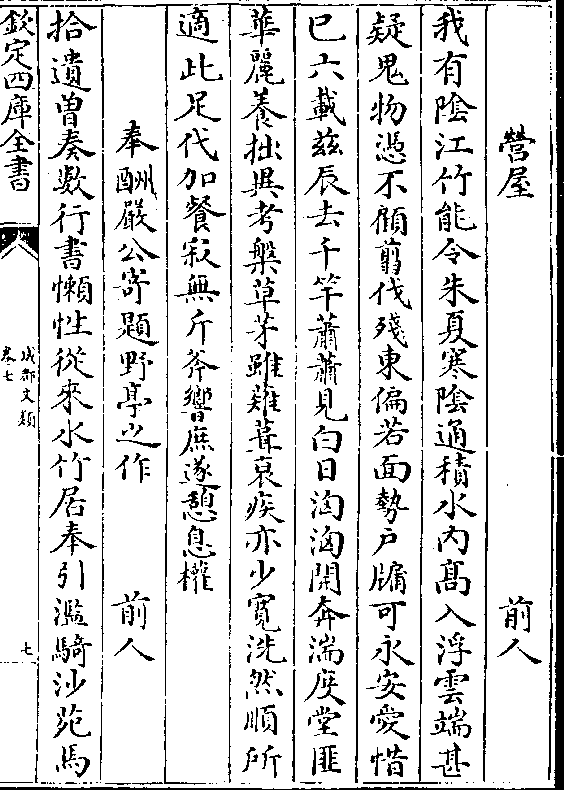 營屋 前人
我有陰江竹能令朱夏寒陰通積水内髙入浮雲端甚
疑鬼物憑不顧翦伐殘東偏若面勢戶牖可永安愛惜
已六載兹辰去千竿蕭蕭見白日洶洶開奔湍度堂匪
華麗養拙異考槃草茅雖薙葺衰疾亦少寛洗然順所
適此足代加餐寂無斤斧響庶遂憩息懽
奉酬嚴公寄題野亭之作 前人
拾遺曽奏數行書懶性從來水竹居奉引濫騎沙苑馬
欽定四庫全書
成都文類
卷七
七